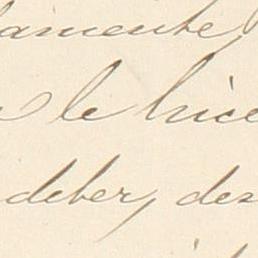 lamente
le hice
deber, des